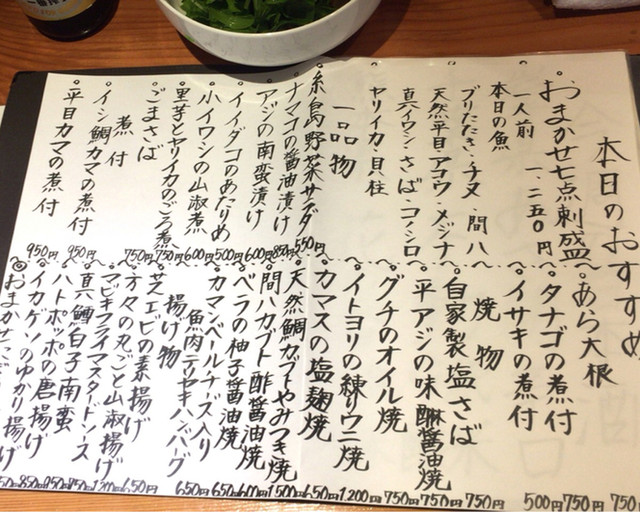 本日のおすすめ
おまかせ七点刺盛
一人前 一、二五〇円
本日の魚
ブリたたき・チヌ・間八
天然平目・アコウ・メジナ
真イワシ・さば・コノシロ
ヤリイカ・貝柱
一品物
糸島野菜サラダ 550円
ナマコの醤油漬け 850円
アジの南蛮漬け 600円
イイダコのあたりめ 500円
小イワシの山椒煮 600円
里芋とヤリイカのごろ煮 750円
ごまさば 750円
煮付
イシ鯛カマの煮付 950円
平目カマの煮付 950円
あら大根 750円
タナゴの煮付 750円
イサキの煮付 500円
焼物
自家製塩さば 750円
平アジの味醂醤油焼 750円
グチのオイル焼 750円
イトヨリの練りウニ焼 1,200円
カマスの塩麹焼 650円
天然鯛カブトやみつき焼 1,500円
間八カブト酢醤油焼 600円
ベラの柚子醤油焼 650円
カマンベールチーズ入り
魚肉テリヤキハンバーグ 650円
揚げ物
芝エビの素揚げ 650円
方々の丸ごと山椒揚げ
マビキフライマスタードソース
真鱈白子南蛮
ハトポッポの唐揚げ
イカゲソのゆかり揚げ
おまかせ